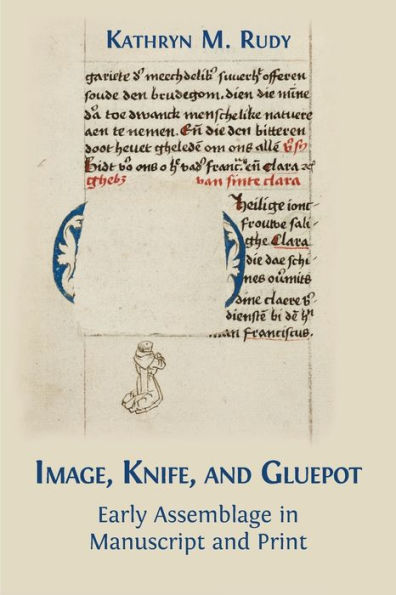 KATHRYN M. RUDY
gariete d' meechdelik' suuerh' offeren
soude den brudegom. dien die mine
d'a toe dwanck menschelike natuere
aen te nemen. En die den bitteren
doot hevet gheleden om ons alle
Bidt v' ons o h' vad' franc. en Clara
ghebz van sinte clara
Heilige ionc-
frouwe sali-
ghe Clara
die dae schi-
nes oumits
dine claere
dienste bi de h'
man franciscus.
IMAGE, KNIFE, AND GLUEPOT
Early Assemblage in
Manuscript and Print